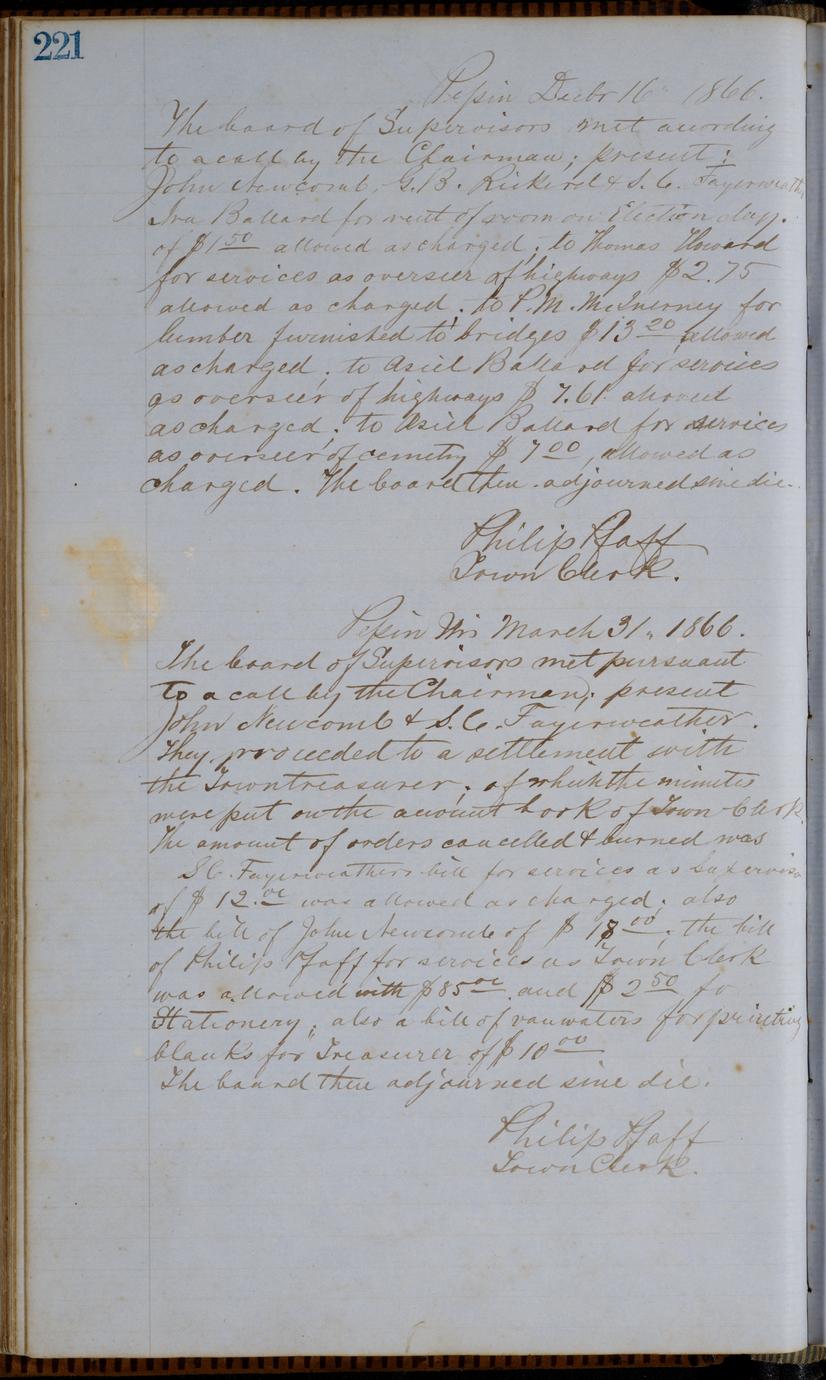 221
Pepin Decbr 16" 1866.
The board of Supervisors met acording
to a call by the Chairman; present:
John Newcomb, G.B. Rickerd & S. C. Fayerweather
Ira Ballard for rent of room on Election day.
of $1 50 allowed as charged; to Thomas Howard
for services as overseer of highways $2.75
allowed as charged; to P.M. McInerney for
lumber furnished to bridges $13 20 allowed
as charged; to Asiel Ballard for services
as overseer of highways $ 7.61 allowed
as charged; to Asiel Ballard for services
as overseer of cemetry $ 7 00, allowed as
charged. The board then adjourned sine die.
Philip Pfaff
Town Clerk.
Pepin Wis March 31" 1866.
The board of Supervisors met pursuant
to a call by the Chairman; present
John Newcomb & S.C. Fayerweather.
They proceeded to a settlement with
the Towntreasurer; of which the minutes
were put on the account book of Town Clerk.
The amount of orders cancelled & burned was
S.C. Fayerweathers bill for services as Supervisor
of $ 12.00 was allowed as charged; also
the bill of John Newcomb of $ 18 00; the bill
of Philip Pfaff for services as Town Clerk
was allowed with $85 00 and $ 2 50 fo
Stationery; also a bill of vanwaters for printing
blanks for Treasurer of $ 10 00
The board then adjourned sine die.
Philip Pfaff
Town Clerk.